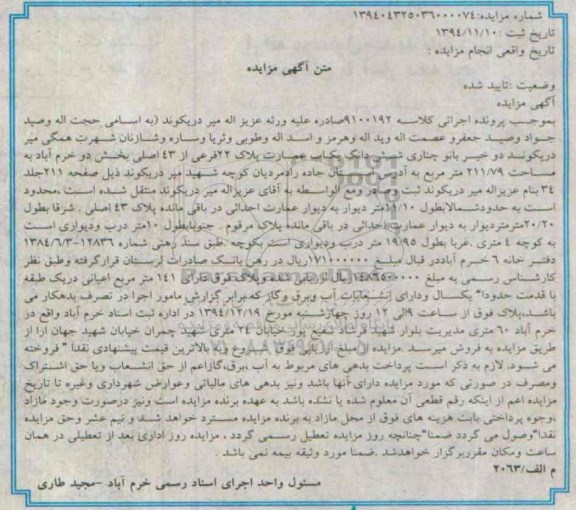 شماره مزایده:۱۳۹۴۰۴۳۲۵۰۳۶۰۰۰۰۷۴
تاریخ ثبت :۱۳۹۴/۱۱/۱۰
تاریخ واقعی انجام مزایده :
متن آگهی مزایده
وضعیت :تایید شده
آگهی مزایده
بموجب پرونده اجرائی کلاسه ۹۱۰۰۱۹۲صادره علیه ورثه عزیز اله میر دریکوند (به اسامی حجت اله وصید
جواد وصید جعفرو عصمت اله وید اله وهرمز و اسد اله وطوبی وثریا وساره وشازنان شهرت همگی میر
دریکوند دو خیبر بانو چناری ششدانگ یکباب عمارت پلاک ۲۲فرعی از ۴۳ اصلی بخش دو خرم آباد به
مساحت ۲۱۱/۷۹ متر مربع به آدرس جاده رادمردیان کوچه شهید میر دریکوند ذیل صفحه ۲۱۱جلد
۳۴ بنام عزیزاله میر دریکوند ثبت وصادر ومع الواسطه به آقای عزیزاله میر دریکوند منتقل شده است ،محدود
است به حدودشمالابطول ۱۰/۱۰متر دیوار به دیوار عمارت احداثی در باقی مانده پلاک ۴۳ اصلی . شرقا بطول
۲۰/۲۰مترمتردیوار به دیوار عمارت احداثی در باقی مانده پلاک مرقوم . جنوبابطول ۱۰متر درب ودیواری است
به کوچه ۴ متری .غربا بطول ۱۹/۹۵ متر درب ودیواری است بکوچه .طبق سند رهنی شماره ۱۲۸۳۶-۱۳۸۴/۶/۳
دفتر خانه ۶ خرم آباددر قبال مبلغ ۱۷۱۰۰۰۰۰۰ریال در رهن بانک صادرات لرستان قرارگرفته وطبق نظر
کارشناس رسمی به مبلغ ریال ارزیابی شده وپلاک فوق دارای ۱۴۱ متر مربع اعیانی دریک طبقه
با قدمت حدودا" یکسال ودارای انشعابات آب وبرق وگاز که برابر گزارش مامور اجرا در تصرف بدهکار می
باشد.پلاک فوق از ساعت ۹الی ۱۲ روز چهارشنبه مورخ ۱۳۹۴/۱۲/۱۹ در اداره ثبت اسناد خرم آباد واقع در
خرم آباد ۶۰ متری مدیریت بلوار شهید ارشاد شفیع پور خیابان ۲۴ متری شهید چمران خیابان شهید جهان آرا از
طریق مزایده به فروش میرسد .مزایده از مبلغ ارزیابی فوق شروع وبه بالاترین قیمت پیشنهادی نقدا " فروخته
می شود. لازم به ذکر است پرداخت بدهی های مربوط به آب ،برق،گازاعم از حق انشعاب ویا حق اشتراک
ومصرف در صورتی که مورد مزایده دارای آنها باشد ونیز بدهی های مالیاتی وعوارض شهرداری وغیره تا تاریخ
مزایده اعم از اینکه رقم قطعی آن معلوم شده یا نشده باشد به عهده برنده مزایده است ونیز درصورت وجود مازاد
،وجوه پرداختی بابت هزینه های فوق از محل مازاد به برنده مزایده مسترد خواهد شد و نیم عشر وحق مزایده
نقدا"وصول می گردد ضمنا"چنانچه روز مزایده تعطیل رسمی گردد ، مزایده روز اداری بعد از تعطیلی در همان
ساعت ومکان مقرربرگزار خواهدشد .ضمنا مورد وثیقه بیمه نمی باشد .
م الف/۲۰۶۳
مسئول واحد اجرای اسناد رسمی خرم آباد –مجید طاری